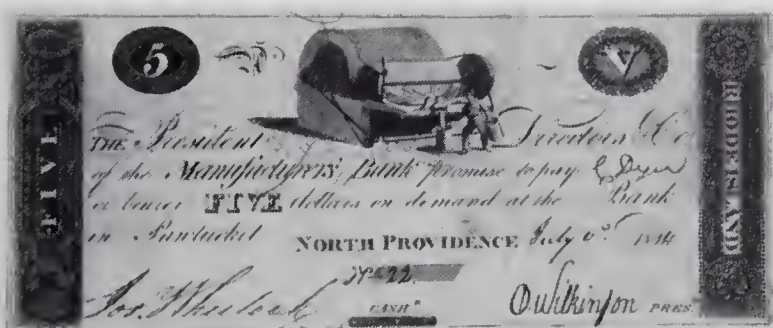 5 V
FIVE
RHODE ISLAND
THE President Directors & Co
of the Manufacturers' Bank promise to pay
or bearer FIVE dollars on demand at the Bank
in Pawtucket NORTH PROVIDENCE July
No 22
Jos. Wheelock CASHR O Wilkinson PRES.